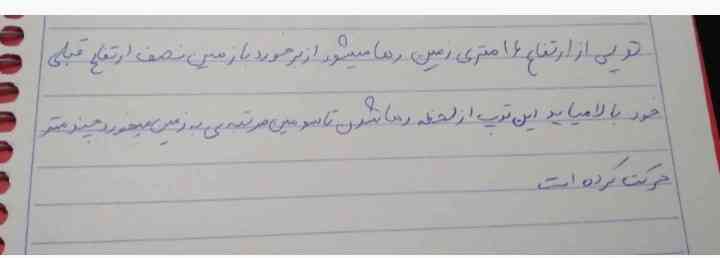 توپی از ارتفاع ۱۶ متری زمین رها میشود از برخورد با زمین نصف ارتفاع قبلی
خود بالا میاید این توپ از لحظه رها شدن تا سومین مرتبه ی به زمین میخورد چند متر
حرکت کرده است